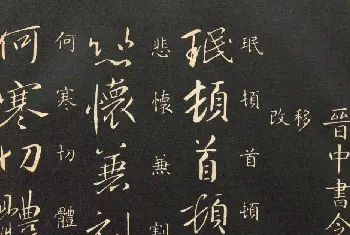 晉中書令
移
改
珉頓首頓
珉頓首頓
悲懷兼割
悲懷兼割
何寒切體
何寒切體